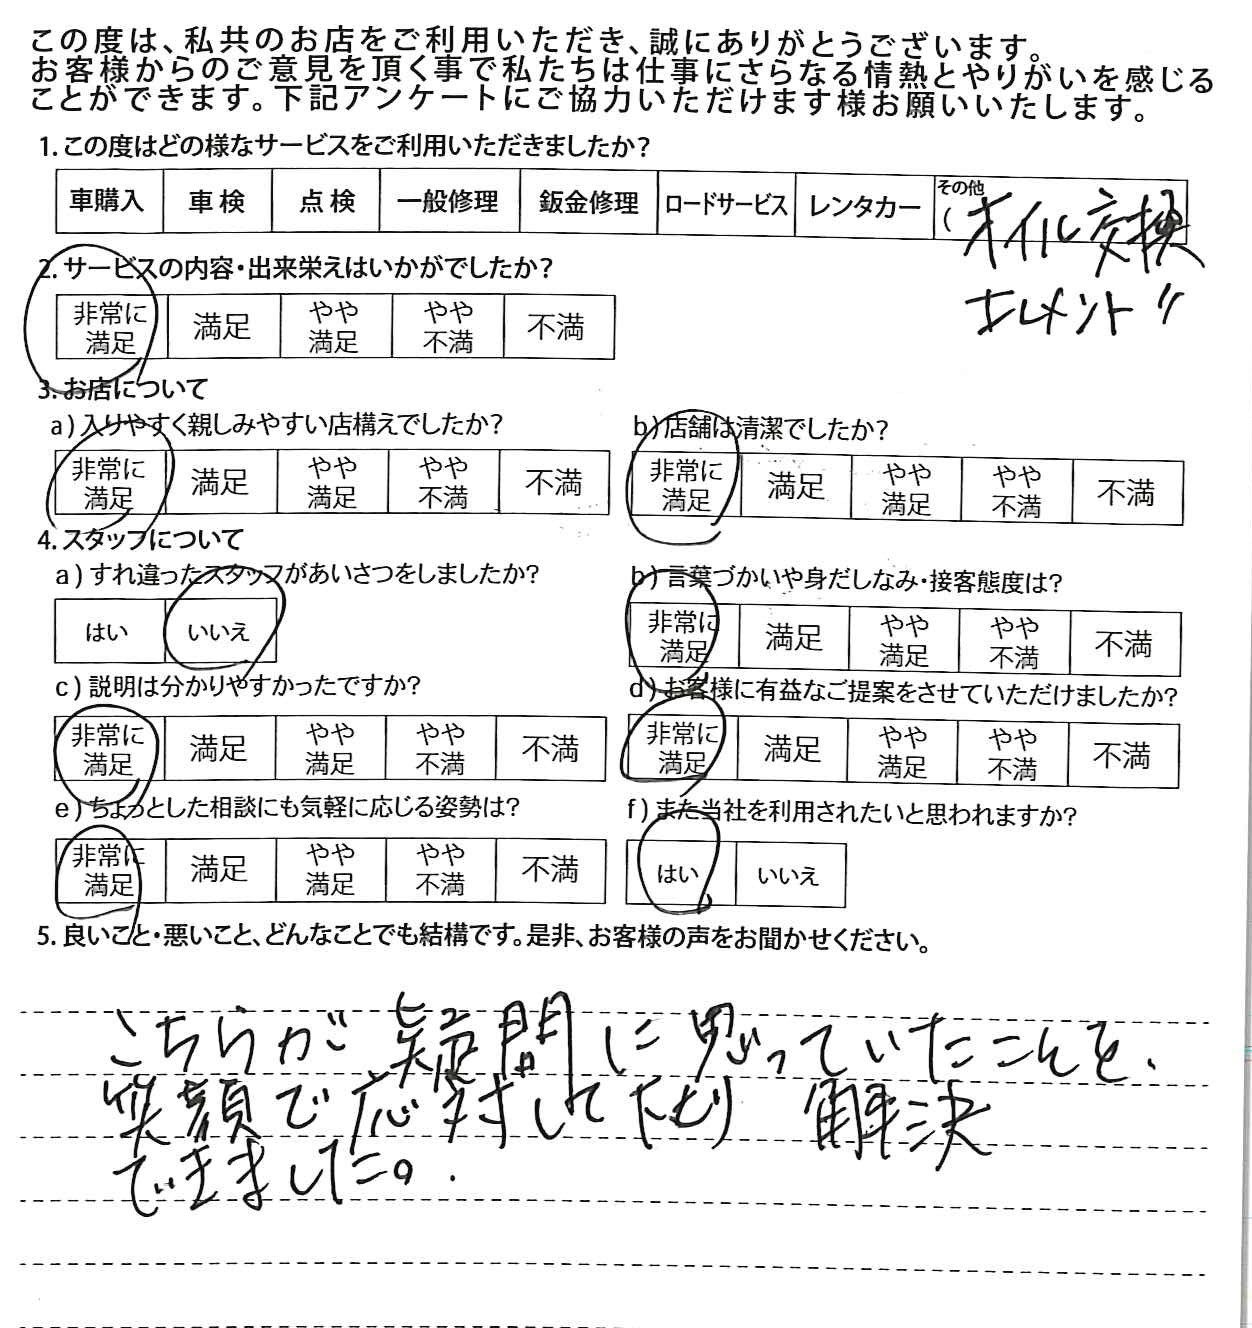 この度は、私共のお店をご利用いただき、誠にありがとうございます。
お客様からのご意見を頂く事で私たちは仕事にさらなる情熱とやりがいを感じる
ことができます。下記アンケートにご協力いただけます様お願いいたします。
1.この度はどの様なサービスをご利用いただきましたか?
車購入 車検 点検 一般修理 鈑金修理 ロードサービス レンタカー その他
( オイル交換
エレメント 〃
2.サービスの内容・出来栄えはいかがでしたか?
非常に満足 満足 やや満足 やや不満 不満
3.お店について
a)入りやすく親しみやすい店構えでしたか? b)店舗は清潔でしたか?
非常に満足 満足 やや満足 やや不満 不満 非常に満足 満足 やや満足 やや不満 不満
4.スタッフについて
a)すれ違ったスタッフがあいさつをしましたか? b)言葉づかいや身だしなみ・接客態度は?
はい いいえ 非常に満足 満足 やや満足 やや不満 不満
c)説明は分かりやすかったですか? d)お客様に有益なご提案をさせていただけましたか?
非常に満足 満足 やや満足 やや不満 不満 非常に満足 満足 やや満足 やや不満 不満
e)ちょっとした相談にも気軽に応じる姿勢は? f)また当社を利用されたいと思われますか?
非常に満足 満足 やや満足 やや不満 不満 はい いいえ
5.良いこと・悪いこと、どんなことでも結構です。是非、お客様の声をお聞かせください。
こちらが疑問に思っていたことを、
笑顔で応対して下さり 解決
できました。